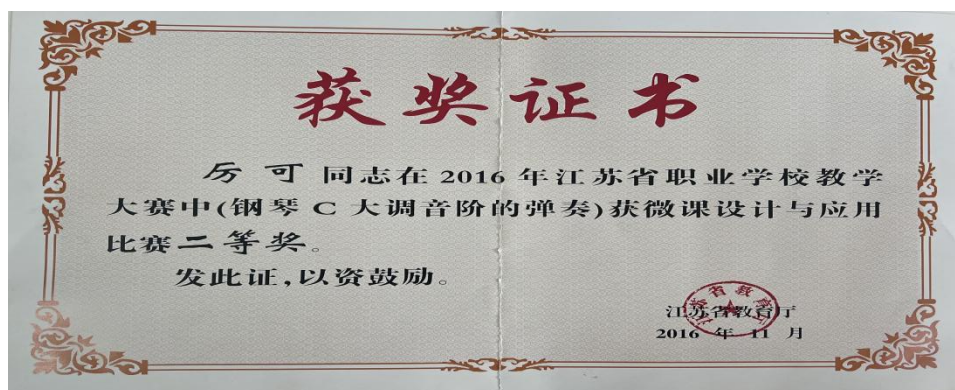 获奖证书
厉可同志在 2016 年江苏省职业学校教学
大赛中(钢琴 C 大调音阶的弹奏)获微课设计与应用
比赛二等奖。
发此证,以资鼓励。
江苏省教育厅
2016 年 11 月